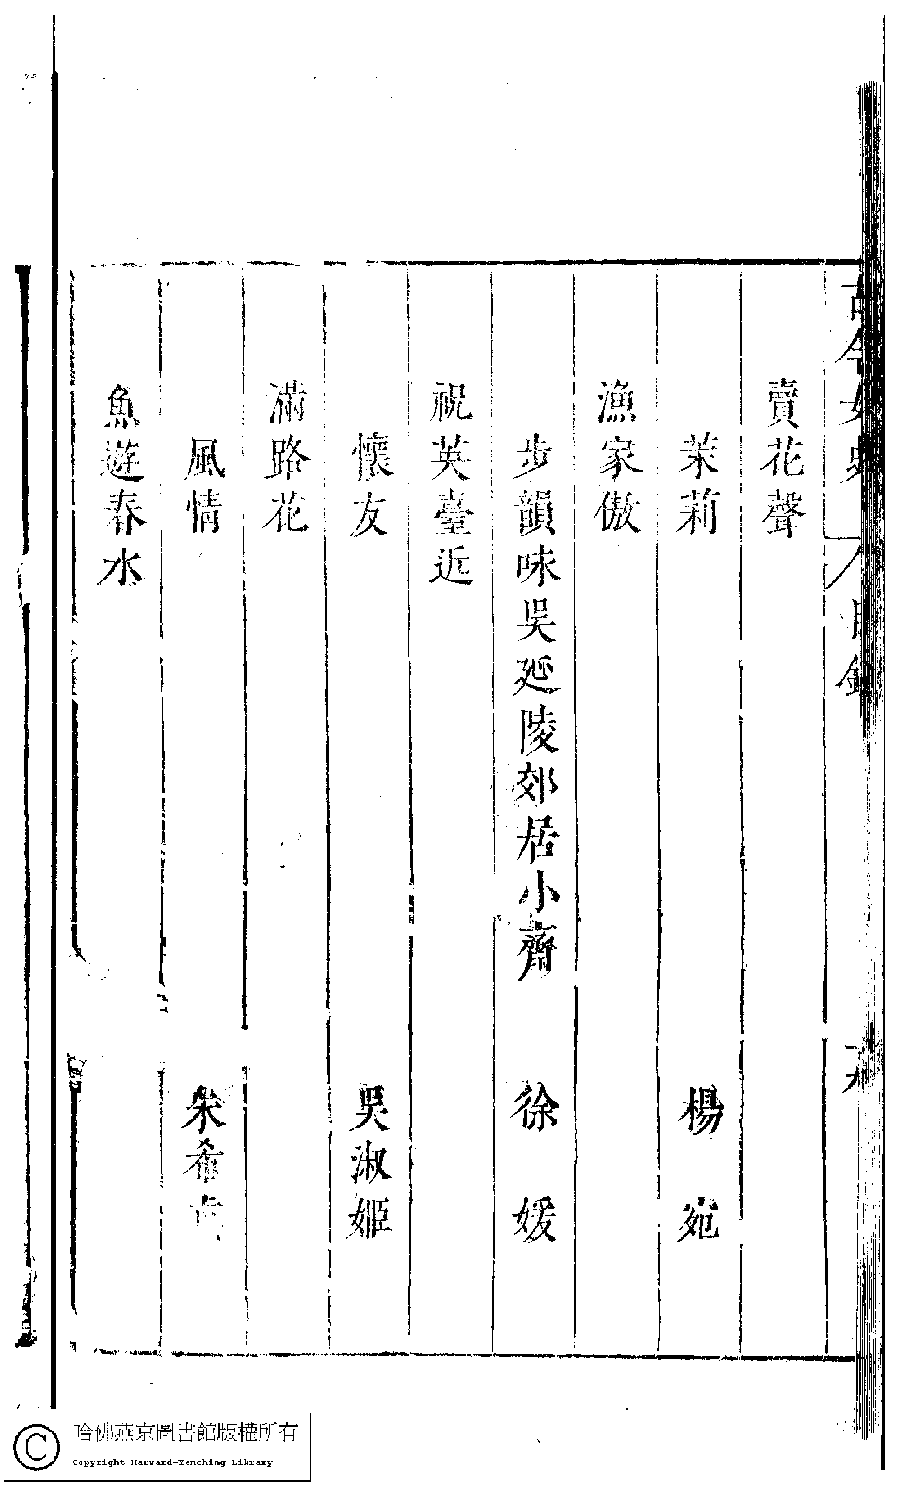 賣花聲
茉莉　楊宛
漁家傲
步韻味吳延陵郊居小齋　徐媛
祝英臺近
懷友　吳淑姬
滿路花
風情　朱希
魚遊春水
哈佛燕京圖書館版權所有
Copyright Harvard-Yenching Library